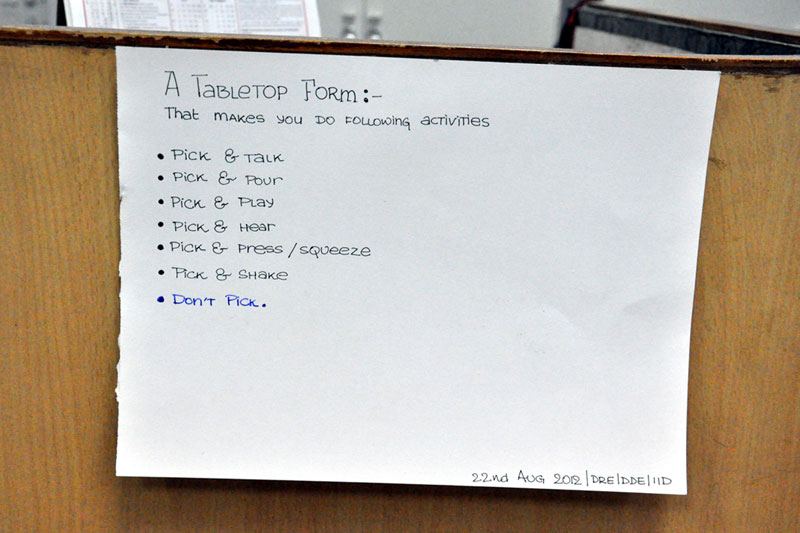 A Tabletop Form:-
That makes you do following activities
• Pick & Talk
• Pick & Pour
• Pick & Play
• Pick & Hear
• Pick & Press/Squeeze
• Pick & Shake
• Don't Pick.
22nd Aug 2012|DRE|DDE|IID